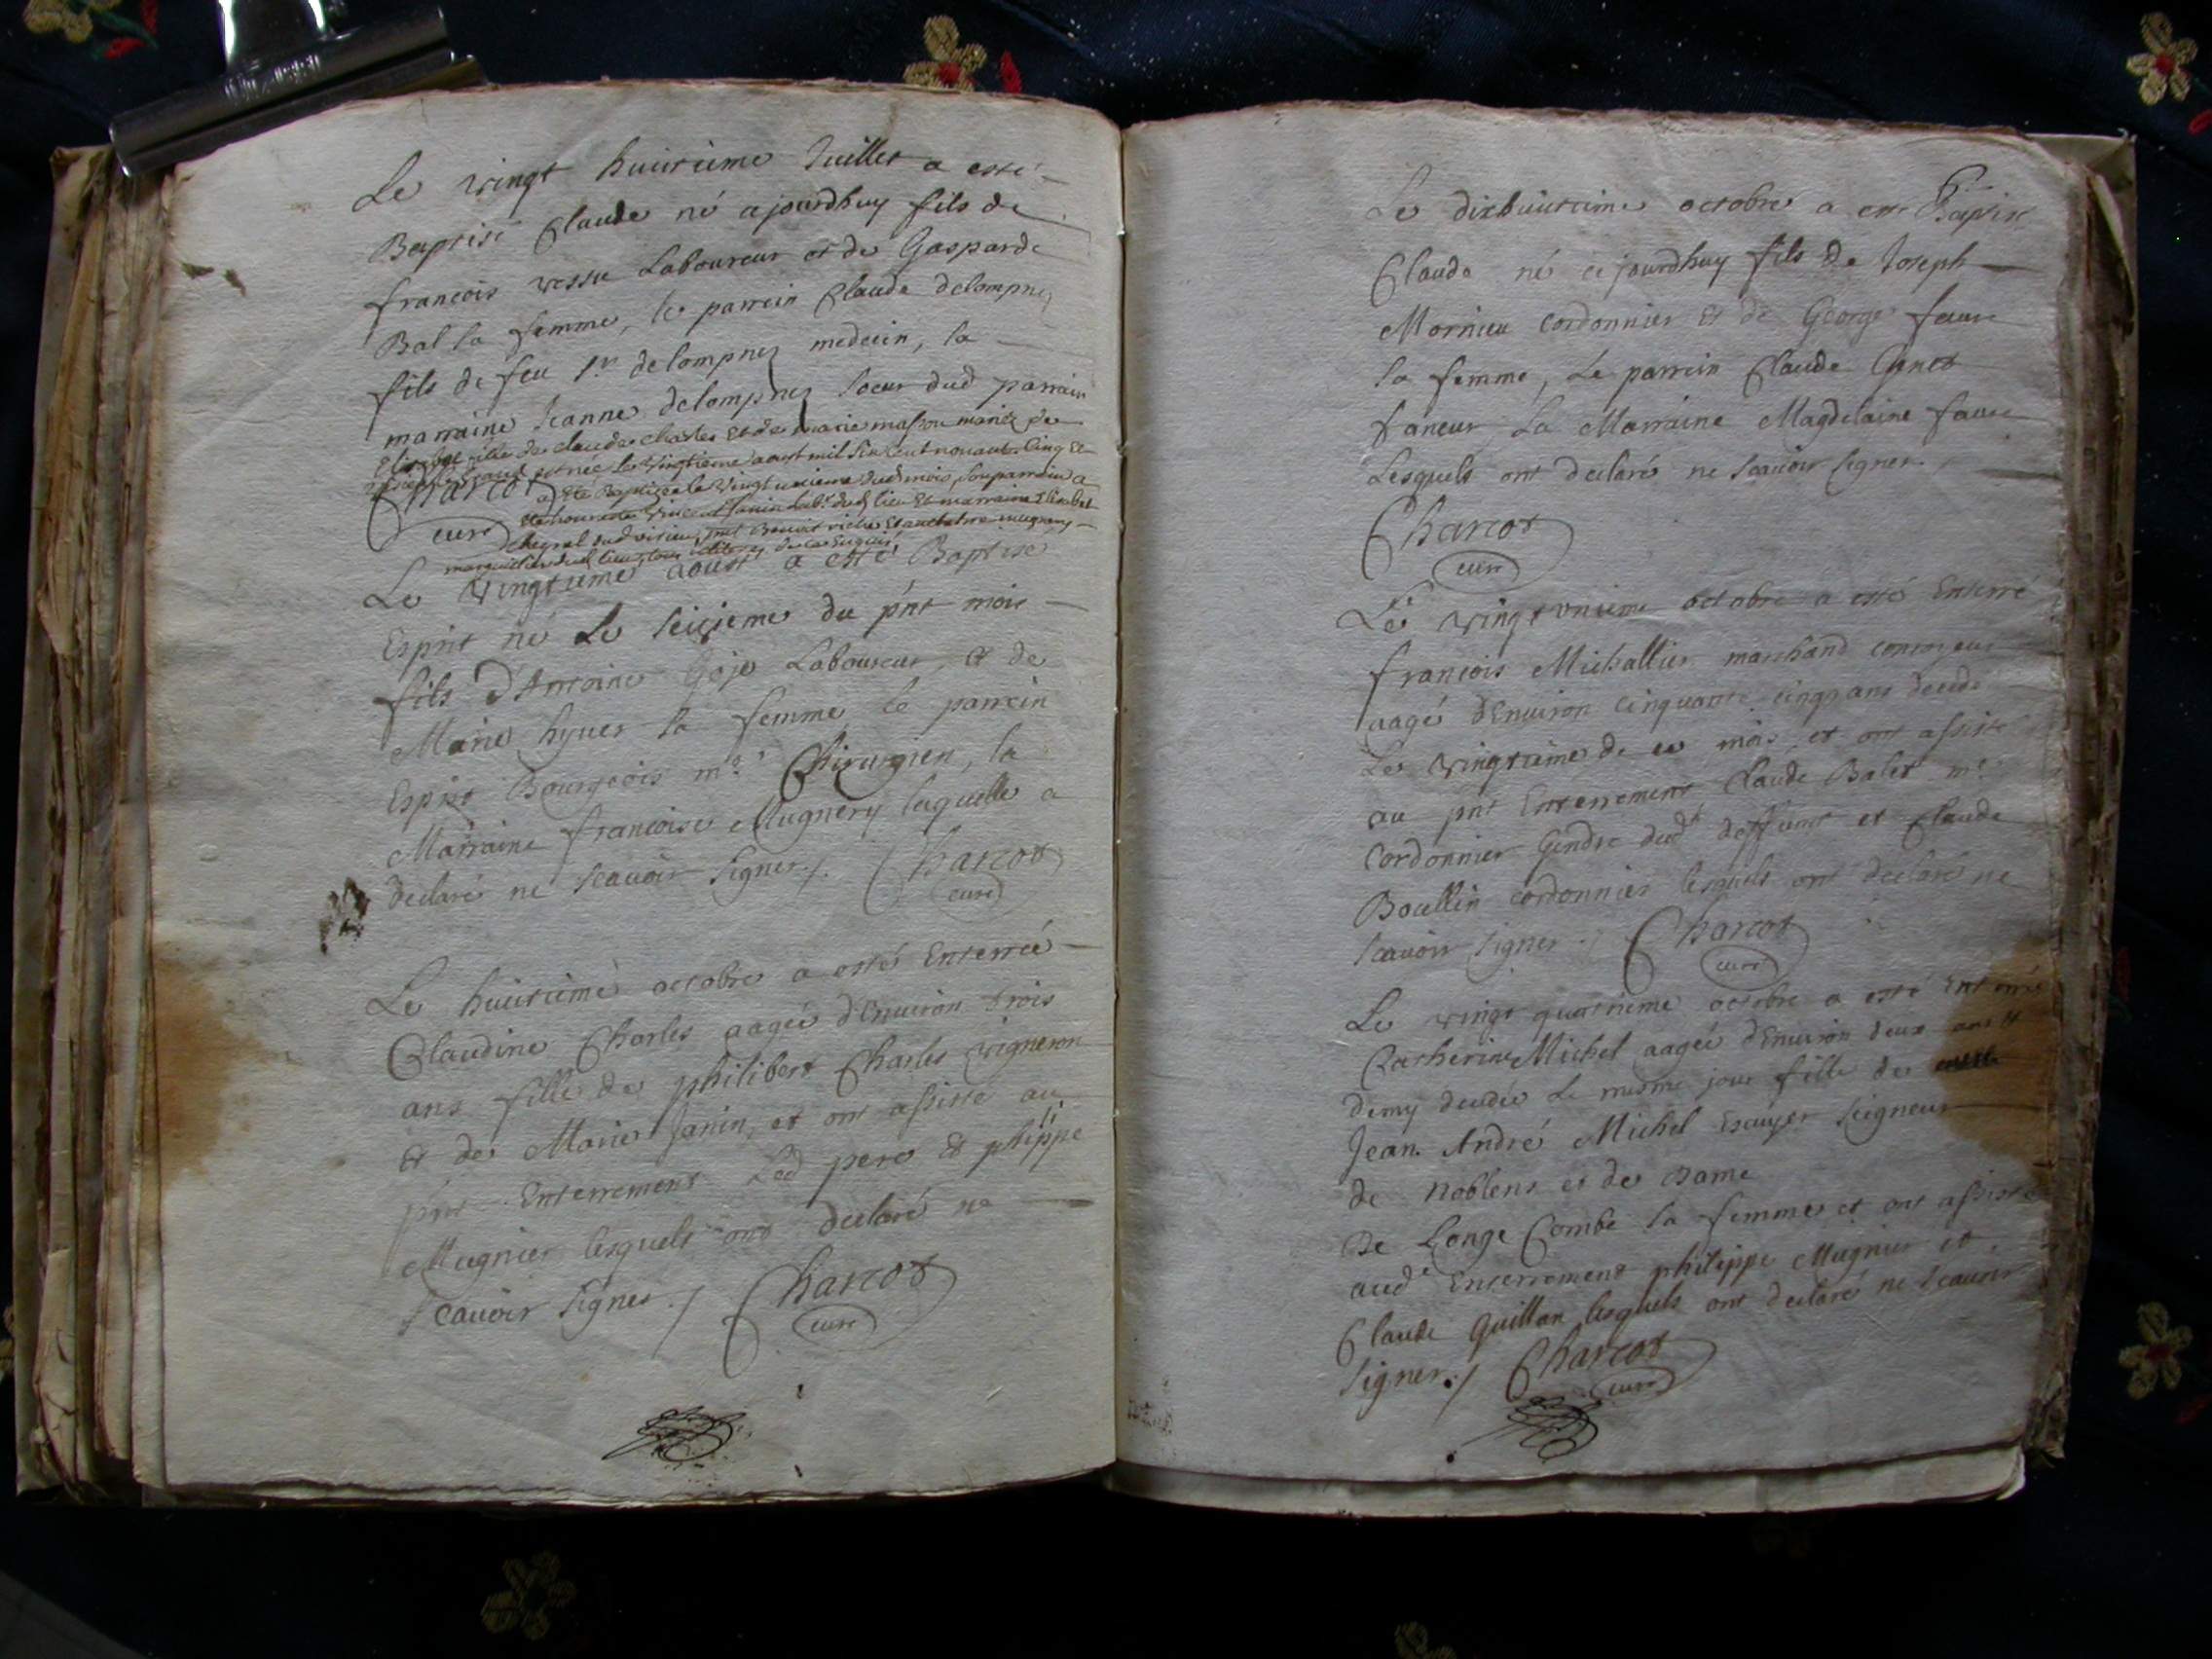 Le vingt huictieme Juillet a esté
Baptisé Claude né ajourdhuy fils de
francois vessu Laboureur et de Gasparde
Bal sa femme, le parrein Claude delompnes
fils de feu Sr delompnes medecin, la
marraine Jeanne delompnes soeur dud parrain
fille de claude charles et de marie masson mariez de
née le vingtieme aoust mil six cent nonante cinq et
Charcot
a été Baptizée le vingt unieme dud mois, son parrain a
été honneste vincent Janin dud lieu et marraine
curé
dud
Le vingtieme aoust a esté Baptise
Esprit né Le seizieme du pnt mois
fils d'Antoine Gojo Laboureur, et de
Marie hyver sa femme le parrein
Esprit Bourgeois me Chirurgien, la
Marraine francoise Mugnery laquelle a
declaré ne scavoir signer ./. Charcot
curé
Le huictieme octobre a esté Enterrée
Claudine Charles aagée d'Environ trois
ans fille de philibert Charles vigneron
et de Marie Janin, et ont assisté au
pnt Enterrement Led pere et phlippe
Mugnier lesquels ont declaré ne
scavoir signer ./ Charcot
curé
Le dixhuictieme octobre a esté Baptisé
Claude né ce jourdhuy fils de Joseph
Mornieu cordonnier et de George faure
sa femme, Le parrein Claude Genet
faneur, La Marraine Magdelaine faure
Lesquels ont declaré ne scavoir signer.
Charcot
curé
Le vingt unieme octobre a esté Enterré
francois Michallier marchand
aagé d'Environ cinquante cinq ans decedé
Le vingtieme de ce mois, et ont assisté
au pnt Enterrement Claude Balet me
cordonnier Gendre dudt deffunt et Claude
Boullin cordonnier lesquels ont declaré ne
scavoir signer ./ Charcot
curé
Le vingt quatrieme octobre a esté Enterrée
Catherine Michel aagée d'Environ deux ans et
demy decedée Le mesme jour fille de
Jean André Michel Escuyer seigneur
de Noblens et de Dame
De Longe Combe sa femme et ont assisté
audt Enterrement philippe Mugnier et
Claude Guillon lesquels ont declaré ne scavoir
signer ./ Charcot
curé